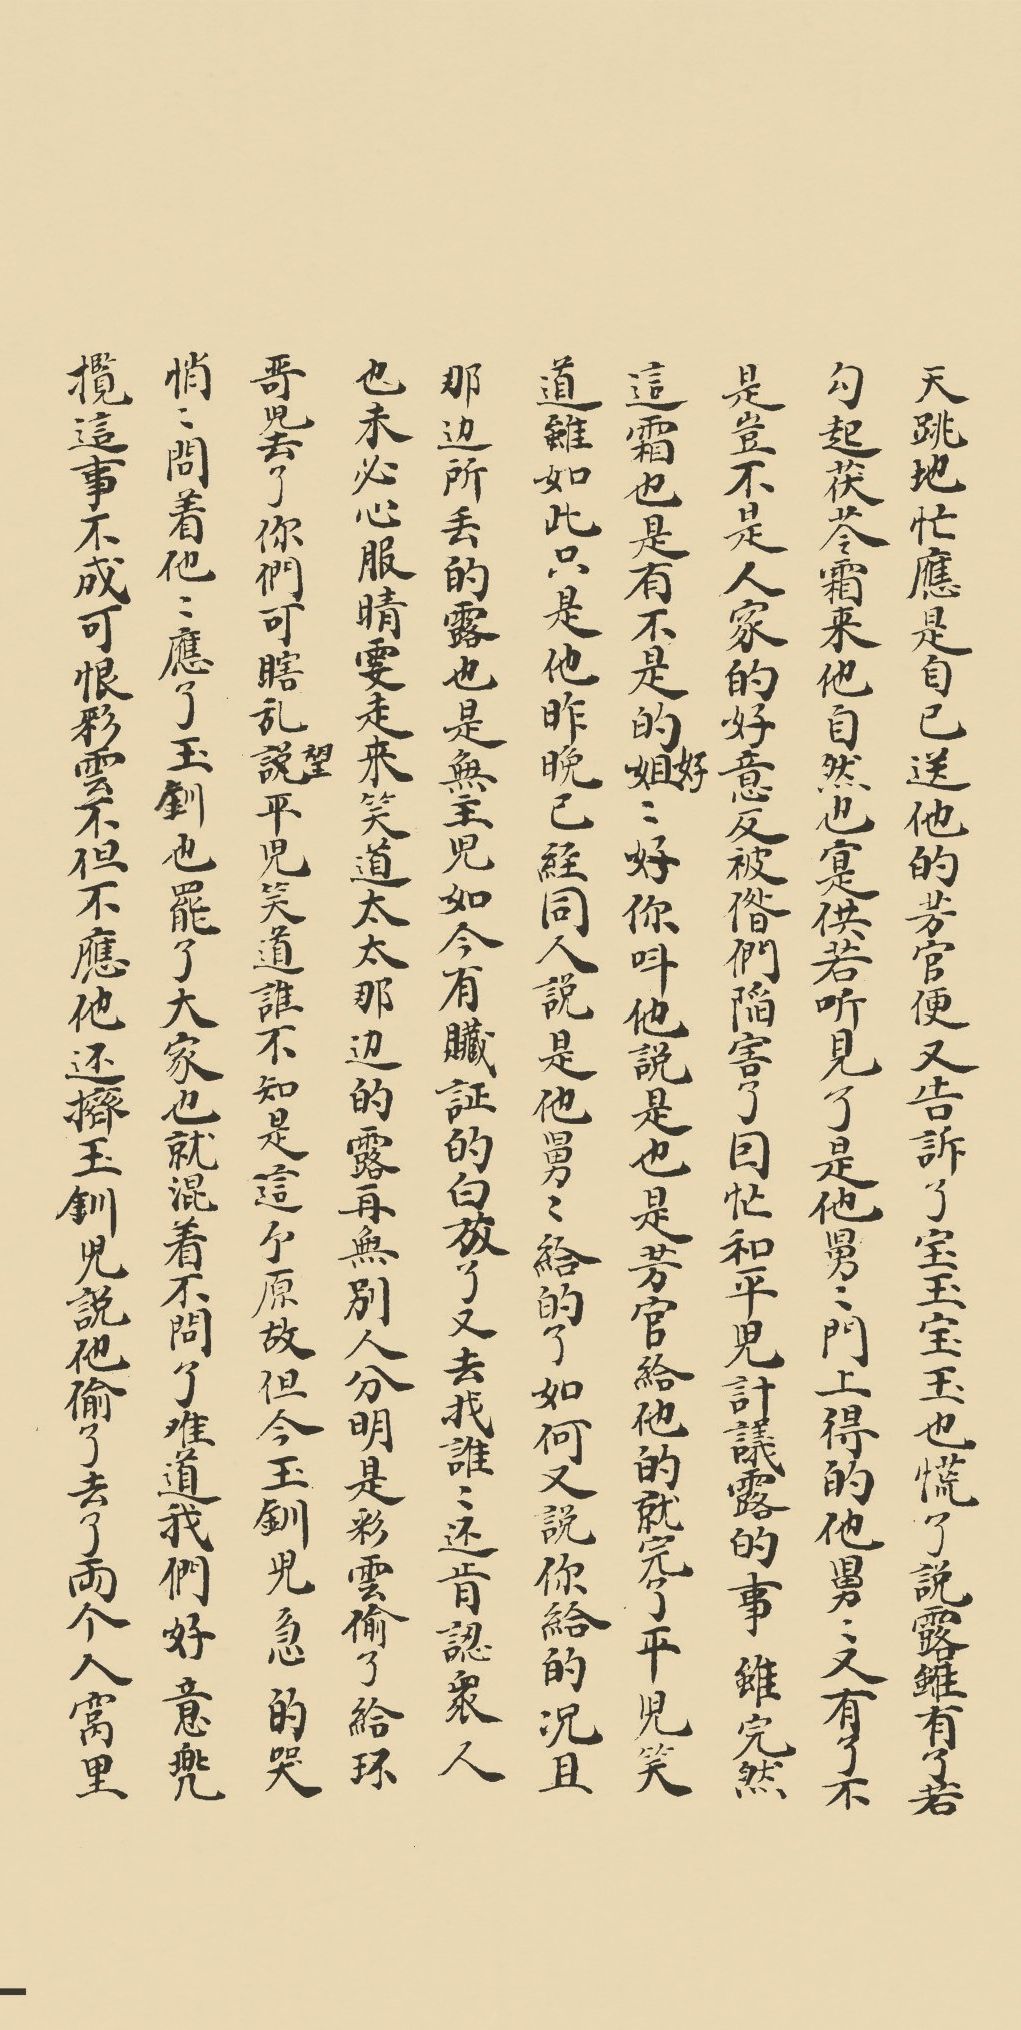 天跳地忙應是自己送他的芳官便又告訴了宝玉宝玉也慌了說露雖有了若
勾起茯苓霜来他自然也寔供若听見了是他舅〻門上得的他舅〻又有了不
是豈不是人家的好意反被偺們陷害了因忙和平児計議露的事雖完然
這霜也是有不是的好姐〻好你呌他說是也是芳官給他的就完了平児笑
道雖如此只是他昨晚已經同人說是他舅〻給的了如何又說你給的况且
那边所丢的露也是無主児如今有贜証的白放了又去找誰〻还肯認衆人
也未必心服晴雯走来笑道太太那边的露再無别人分明是彩雲偷了給环
哥児去了你們可瞎乱說望平児笑道誰不知是這个原故但今玉釧児急的哭
悄〻問着他〻應了玉釧也罷了大家也就混着不問了难道我們好意兜
攬這事不成可恨彩雲不但不應他还擠玉釧児說他偷了去了両个人窩里